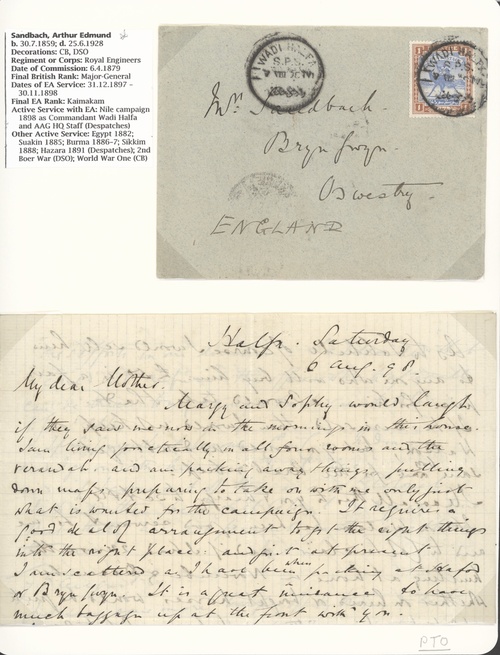 Sandbach, Arthur Edmund
b. 30.7.1859; d. 25.6.1928
Decorations: CB, DSO
Regiment or Corps: Royal Engineers
Date of Commission: 6.4.1879
Final British Rank: Major-General
Dates of EA Service: 31.12.1897 –
30.11.1898
Final EA Rank: Kaimakam
Active Service with EA: Nile campaign
1898 as Commandant Wadi Halfa
and AAG HQ Staff (Despatches)
Other Active Service: Egypt 1882;
Suakin 1885; Burma 1886-7; Sikkim
1888; Hazara 1891 (Despatches); 2nd
Boer War (DSO); World War One (CB)
WADI HALFA
S.P.S.
Mrs Sandbach.
Bryn Gwyn.
Oswestry.
ENGLAND
Halfa. Saturday
6 Aug. 98
My dear Mother.
Margy and Sophy would laugh
if they saw me now in the mornings in this house.
I am living practically in all four rooms and the
verandah. and am packing away things, pulling
down maps, preparing to take on with me only just
what is wanted for the campaign. It requires a
good deal of arrangement to get the right things
into the right place. and just at present
I am scattered as I have been when packing at Hafod
or Bryn Gwyn. It is a great nuisance to have
much baggage up at the front with you.
PTO